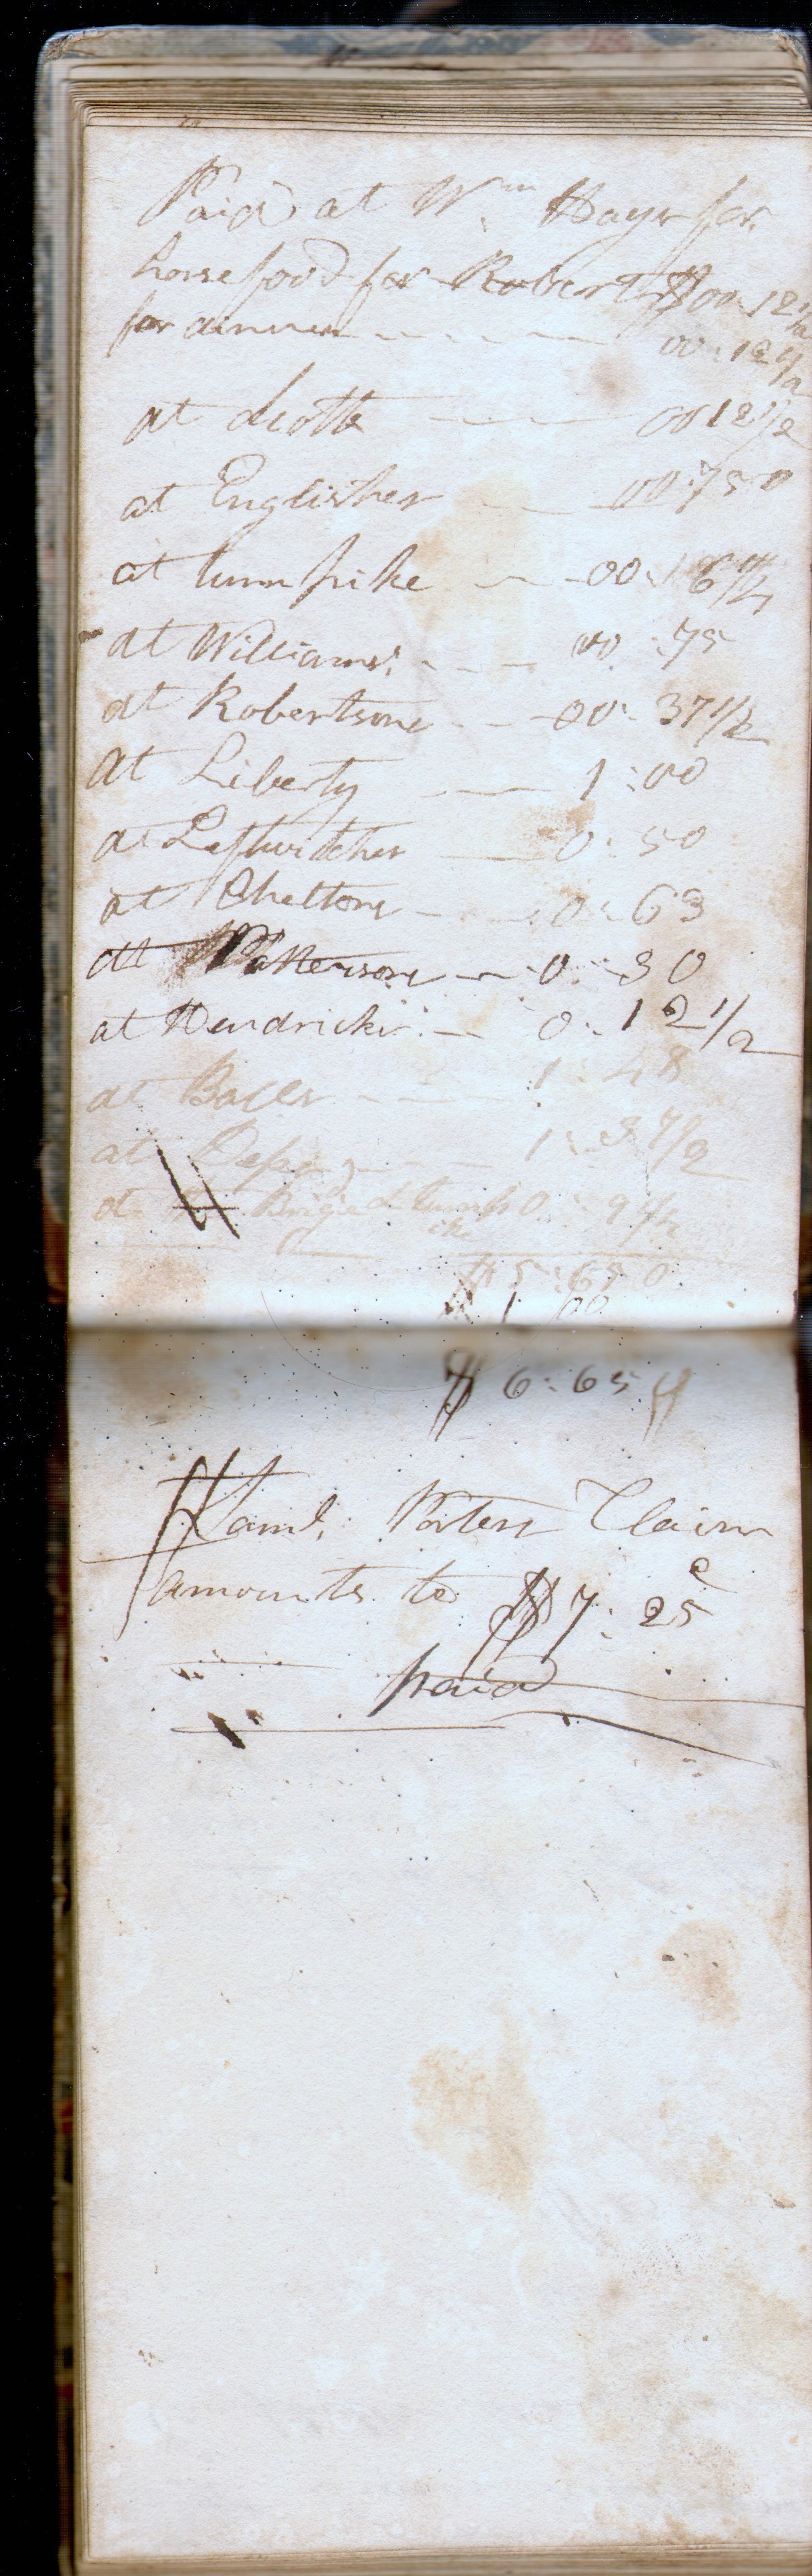 Paid at Wm Hays for
horse food for Robert $00.12 1/2
for dinner 00:12 1/2
at Scotts 00 12 1/2
at Englishes 00:750
at turn pike 00:1 6 1/4
at Williams 00:75
at Robertsons 00:37 1/2
At Liberty 1:00
at Leftwitches 0:50
at Cheltons 0:63
at Pattersons 0:30
at Hendricks 0:12 1/2
at 1:48
at 1:37 1/2
at Briged turnp 0:9 1/2
ike
$5:650
$1 00
$6:65
Saml. Porters Claim
amounts to $7:25 c
paid